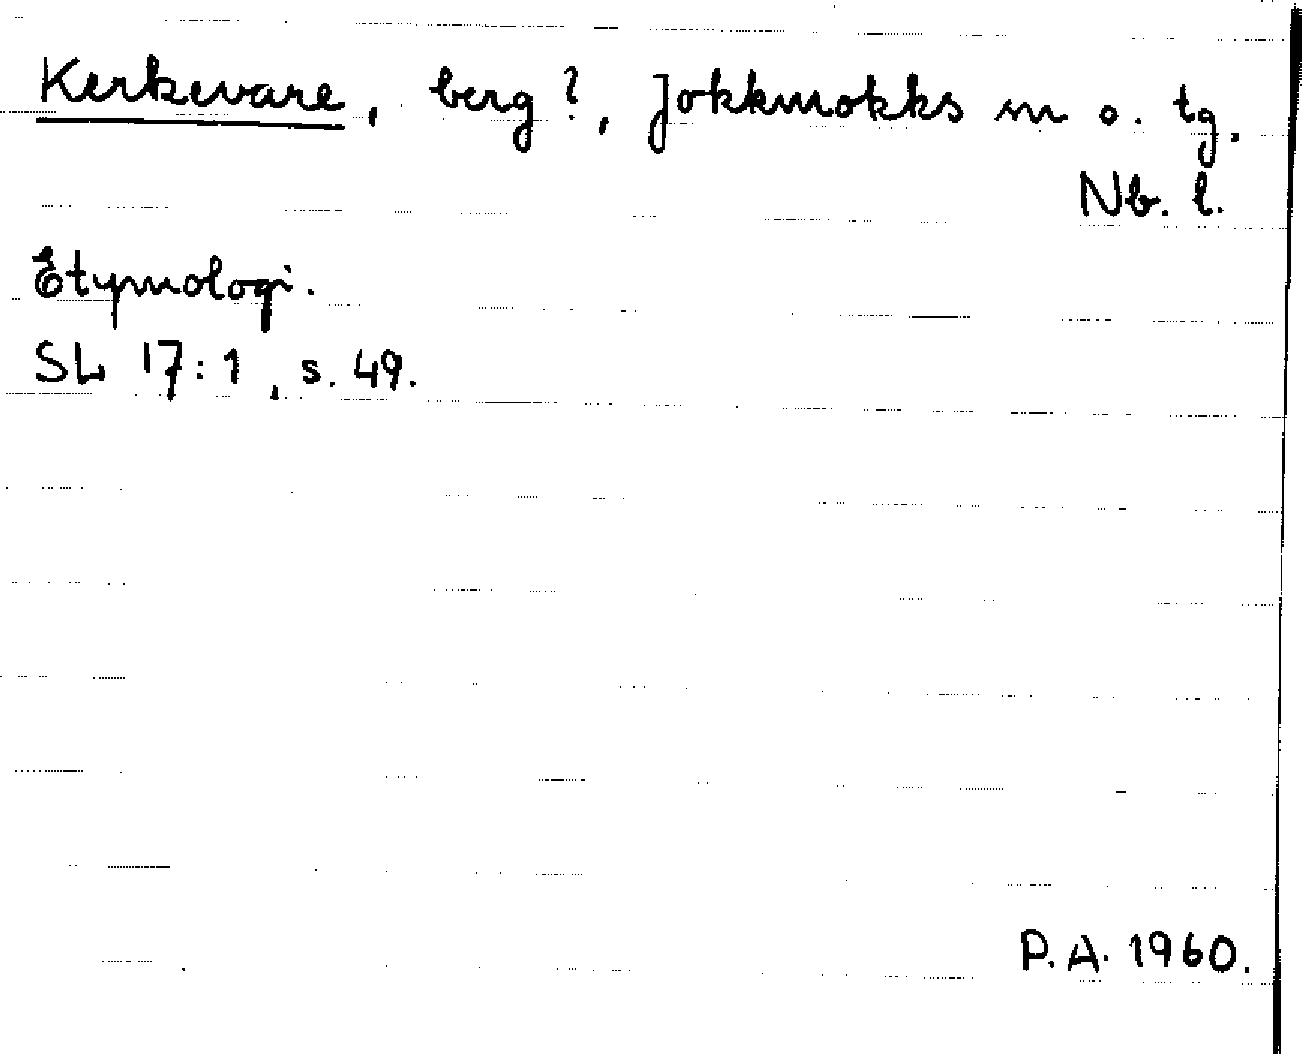 Kerkevare, berg?, Jokkmokks m o. tg.
Nb. l.
Etymologi.
SL 17:1, s. 49.
P.A. 1960.